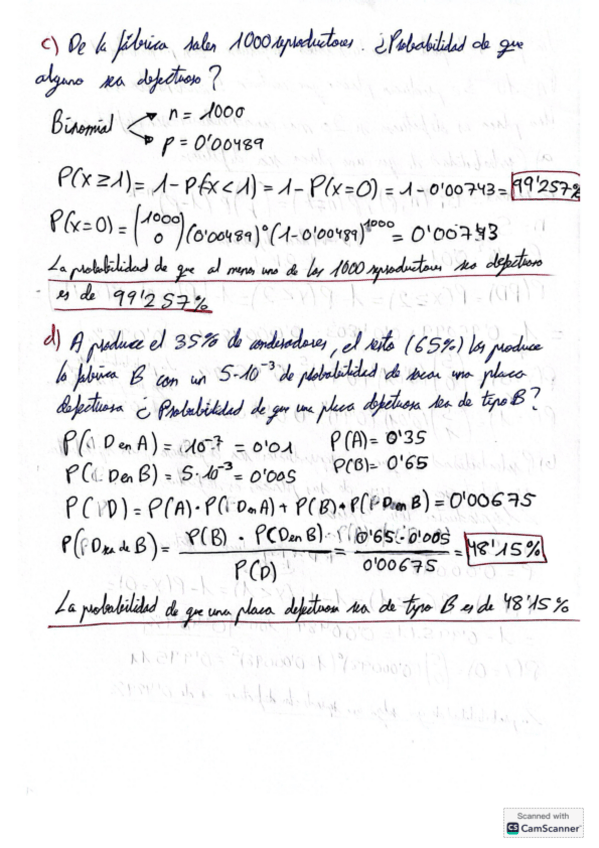 c) De la fábrica salen 1000 reproductores. ¿Probabilidad de que
alguno sea defectuoso?
Binomial n = 1000
p = 0'00489
P(x≥1) = 1 - P(x<1) = 1 - P(x=0) = 1 - 0'00743 = 99'257%
P(x=0) = (1000 0) (0'00489)⁰ (1-0'00489)¹⁰⁰⁰ = 0'00743
La probabilidad de que al menos uno de los 1000 reproductores sea defectuoso
es de 99'257%
d) A produce el 35% de condensadores, el resto (65%) los produce
la fabrica B con un 5·10⁻³ de probabilidad de sacar una placa
defectuosa ¿Probabilidad de que una placa defectuosa sea de tipo B?
P(D en A) = 10⁻² = 0'01 P(A) = 0'35
P(D en B) = 5·10⁻³ = 0'005 P(B) = 0'65
P(D) = P(A)·P(D en A) + P(B)·P(D en B) = 0'00675
P(D sea de B) = P(B) · P(D en B) / P(D) = 0'65·0'005 / 0'00675 = 48'15%
La probabilidad de que una placa defectuosa sea de tipo B es de 48'15%
Scanned with
CS CamScanner